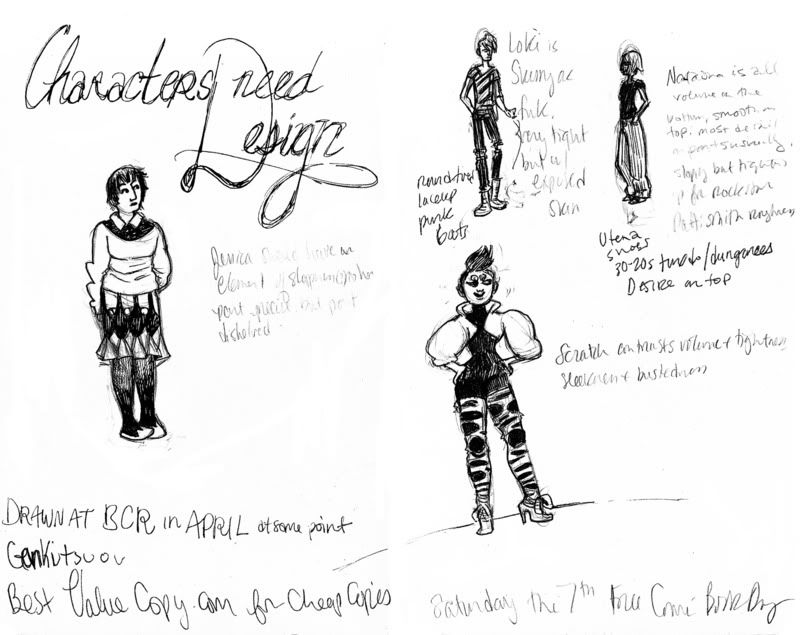 Characters need
Design
Jessica should have an
element of
part precise but part
dishelved.
DRAWN AT BCR in APRIL at some point
Genkitsu ov
Best Value Copy.com for Cheap Copies
Loki is
Skinny as
fuk.
tight
but w/
exposed
skin
round toes
laceup
punk
boots
is all
volume on the
bottom, smooth on
top. most detail
on pants usually.
sloppy but
up for
Patti Smith roughness
Utena
shoes
30-20s tuxedo/dungarees
Desire on top
Scratch contrasts volume + tightness
sleekness + bustedness
Saturday the 7th Free Comic Book Day